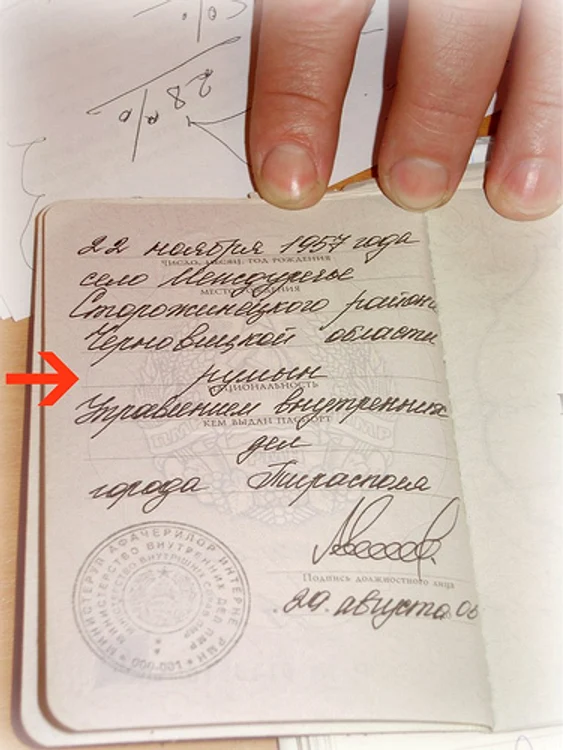 28 %
22 ноября 1957 года
ЧИСЛО, МЕСЯЦ, ГОД РОЖДЕНИЯ
село Междуречье
МЕСТО РОЖДЕНИЯ
Сторожинецкого района
Черновицкой области
румын
НАЦИОНАЛЬНОСТЬ
Управлением внутренних
КЕМ ВЫДАН ПАСПОРТ
дел
города Тирасполя
Подпись должностного лица
29. августа 06
МИНИСТЕРУЛ АФАЧЕРИЛОР ИНТЕРНЕ РМН
МИНИСТЕРСТВО ВНУТРЕННИХ ДЕЛ ПМР
000-001